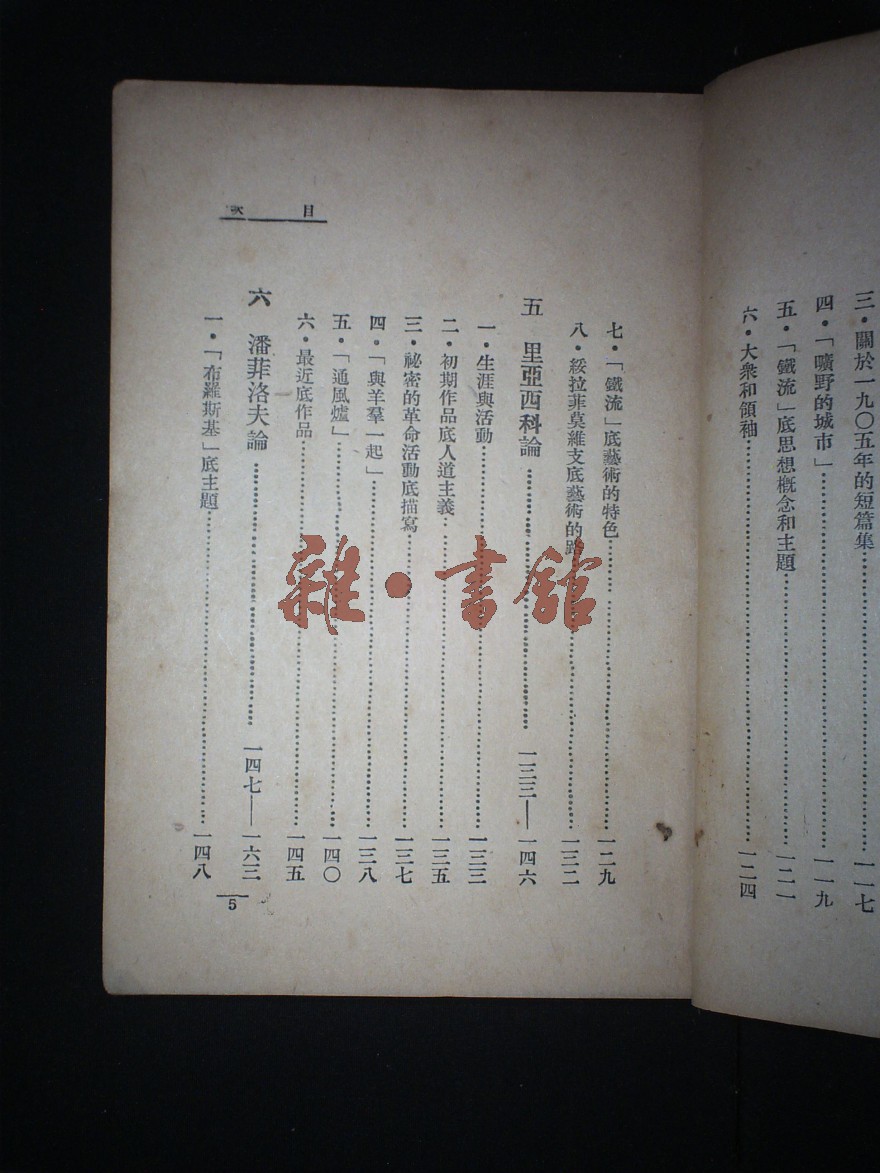 三・關於一九〇五年的短篇集…………一一七
四・「曠野的城市」…………一一九
五・「鐵流」底思想概念和主題…………一二一
六・大衆和領袖…………一二四
目次
七・「鐵流」底藝術的特色…………一二九
八・綏拉菲莫維支底藝術的路…………一三二
五 里亞西科論…………一三三——一四六
一・生涯與活動…………一三三
二・初期作品底人道主義…………一三五
三・祕密的革命活動底描寫…………一三七
四・「與羊羣一起」…………一三八
五・「通風爐」…………一四〇
六・最近底作品…………一四五
六 潘菲洛夫論…………一四七——一六三
一・「布羅斯基」底主題…………一四八
5
雜・書館